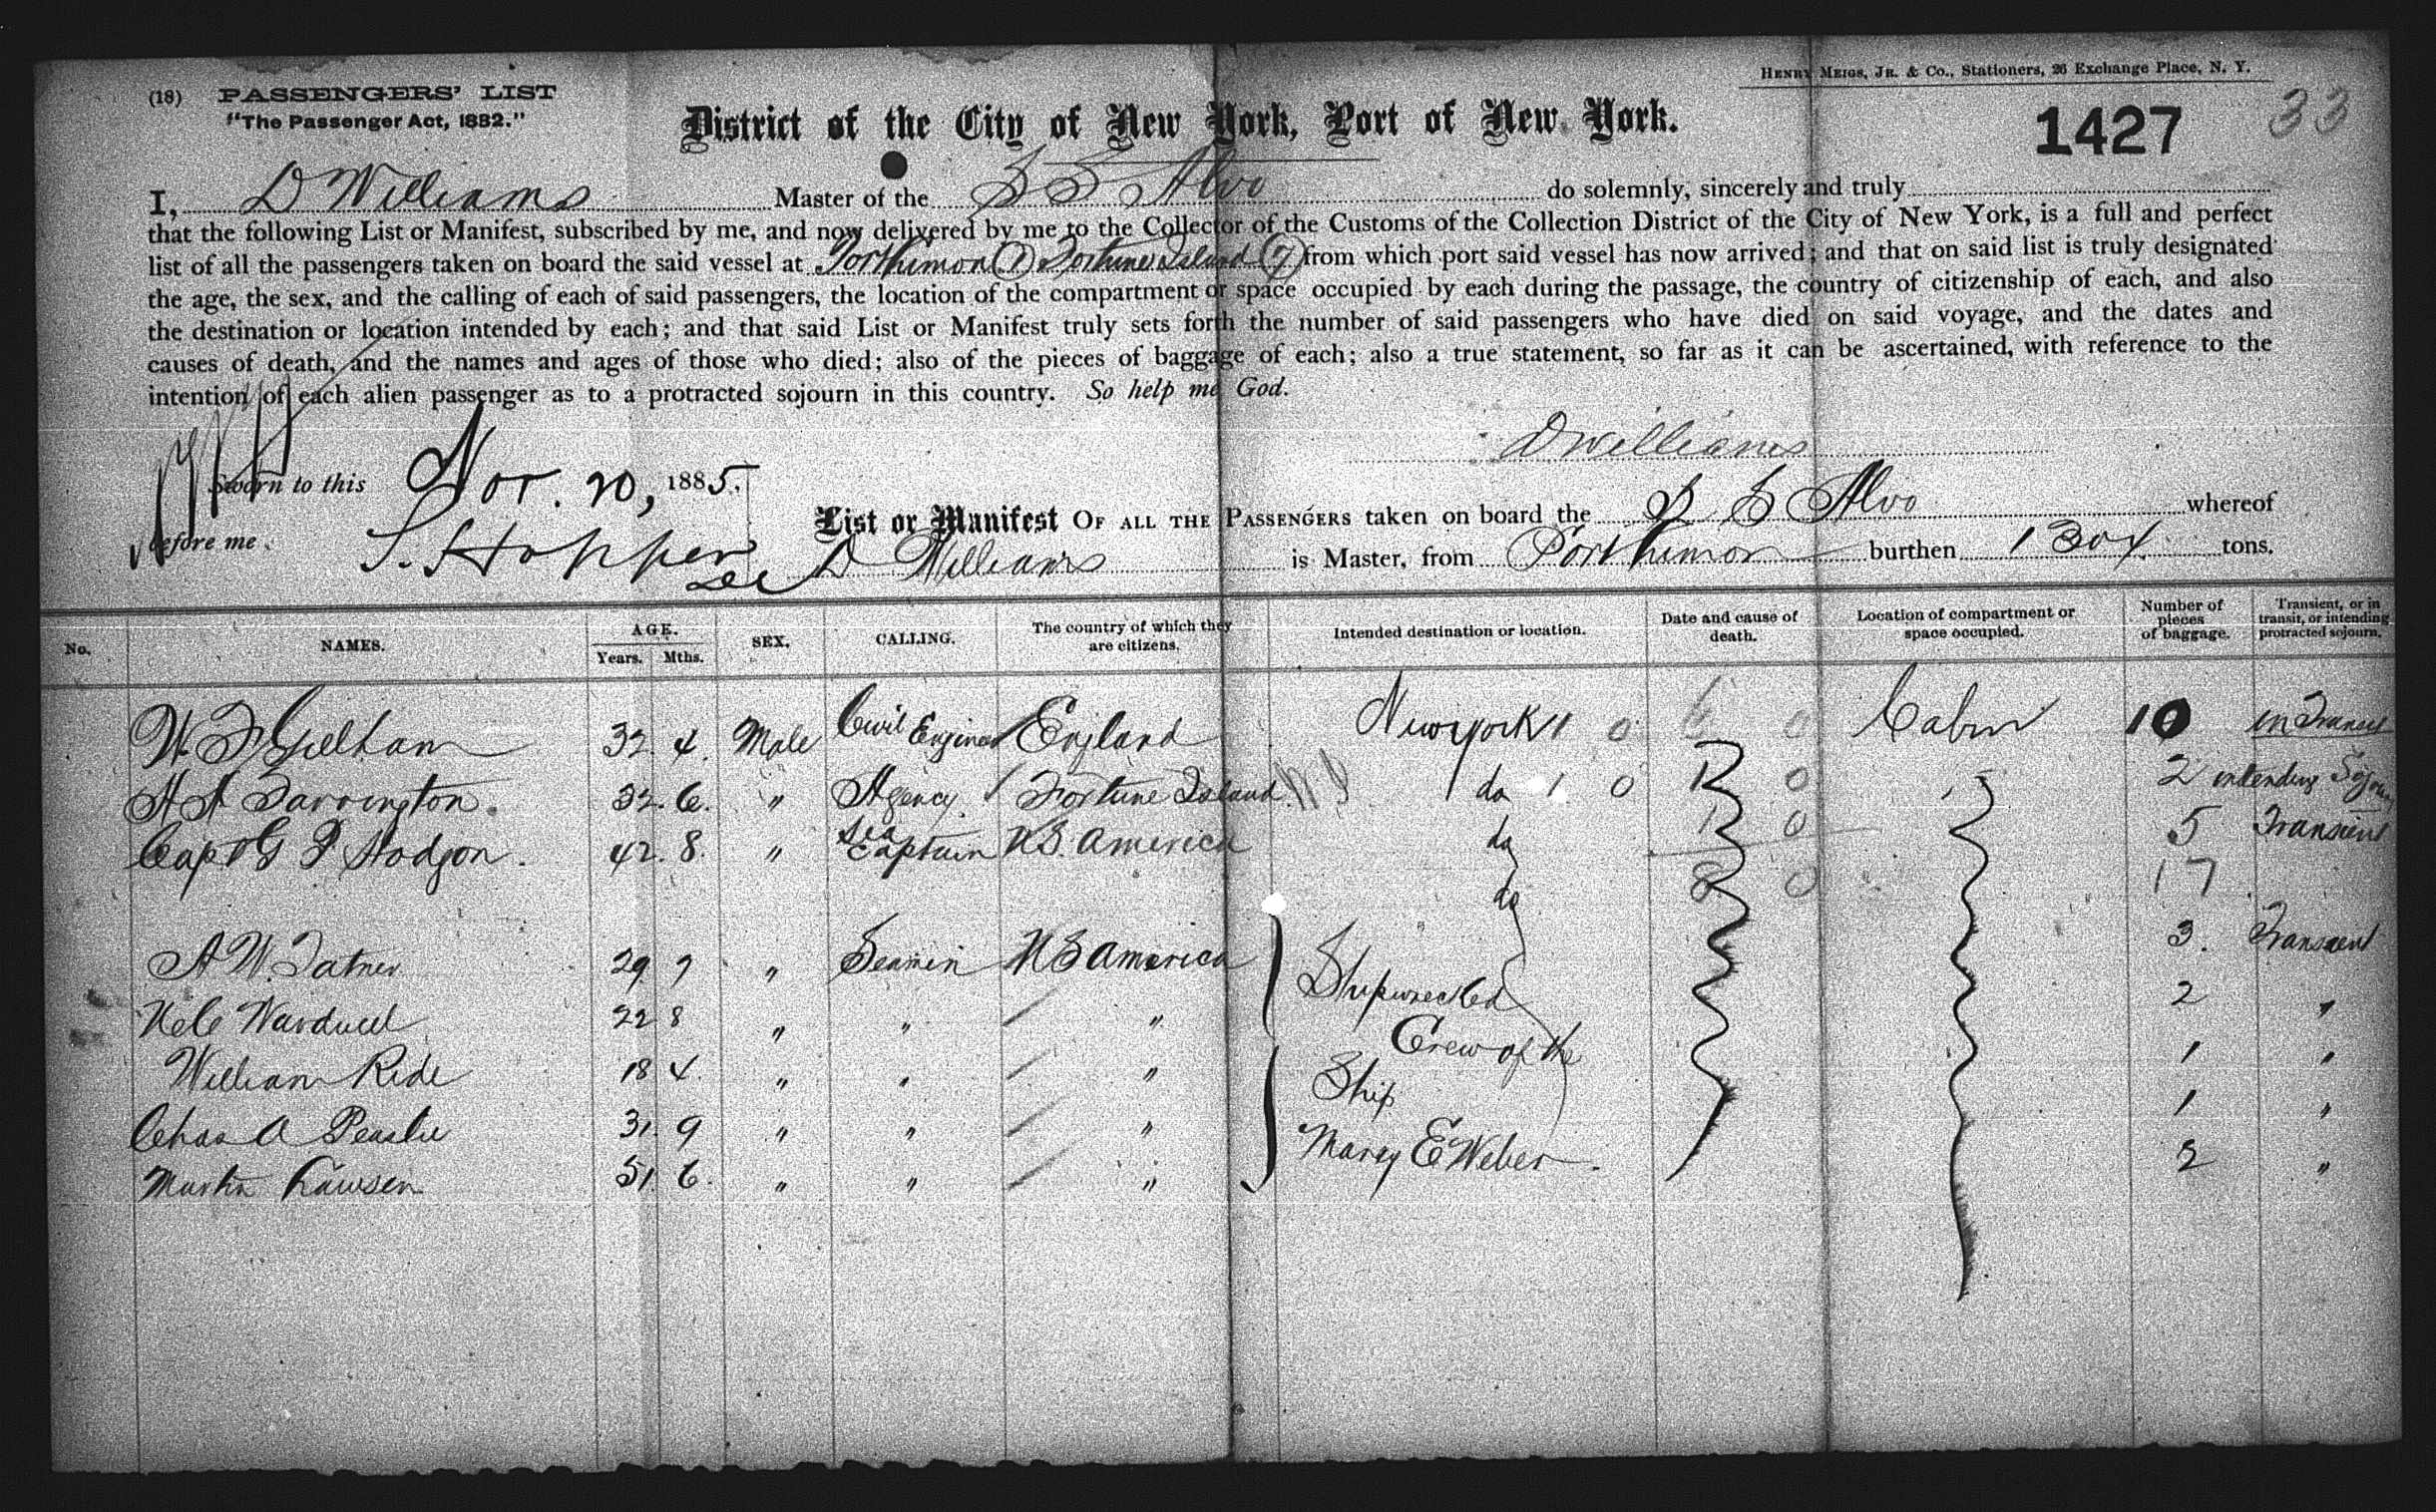 HENRY MEIGS, JR. & CO., Stationers, 26 Exchange Place, N. Y.
(18) PASSENGERS' LIST
"The Passenger Act, 1882."
District of the City of New York, Port of New York.
1427
33
I, D Williams Master of the S S Alvo do solemnly, sincerely and truly
that the following List or Manifest, subscribed by me, and now delivered by me to the Collector of the Customs of the Collection District of the City of New York, is a full and perfect
list of all the passengers taken on board the said vessel at Portlimon (1) Fortune Island (7) from which port said vessel has now arrived; and that on said list is truly designated
the age, the sex, and the calling of each of said passengers, the location of the compartment or space occupied by each during the passage, the country of citizenship of each, and also
the destination or location intended by each; and that said List or Manifest truly sets forth the number of said passengers who have died on said voyage, and the dates and
causes of death, and the names and ages of those who died; also of the pieces of baggage of each; also a true statement, so far as it can be ascertained, with reference to the
intention of each alien passenger as to a protracted sojourn in this country. So help me God.
D Williams
Sworn to this Nov. 20, 1885.
before me S. Hopper
List or Manifest OF ALL THE PASSENGERS taken on board the S S Alvo whereof
D Williams is Master, from Portlimon burthen 1304 tons.
No. NAMES. AGE. Years. Mths. SEX. CALLING. The country of which they are citizens. Intended destination or location. Date and cause of death. Location of compartment or space occupied. Number of pieces of baggage. Transient, or in transit, or intending protracted sojourn.
W. F Gillham 32. 4. Male Civil Engineer England New York 1 0 Cabin 10 in Transit
A A Farrington. 32. 6. " Agency Fortune Island do 1 0 1 0 " 2 intending Sojourn
Capt G P Hodgon. 42. 8. " Sea Captain U S. America do 1 0 5 Transient
do 8 0 17
A W. Tatner 29. 7 " Seamen U S America Shipwrecked 3. Transient
Warduell 22 8 " " " Crew of the 2 "
William Ride 18 4. " " " Ship 1 "
Chas A Peaslie 31. 9 " " " Mary E Weber. 1 "
Martin Lawsen 51. 6. " " " 2 "